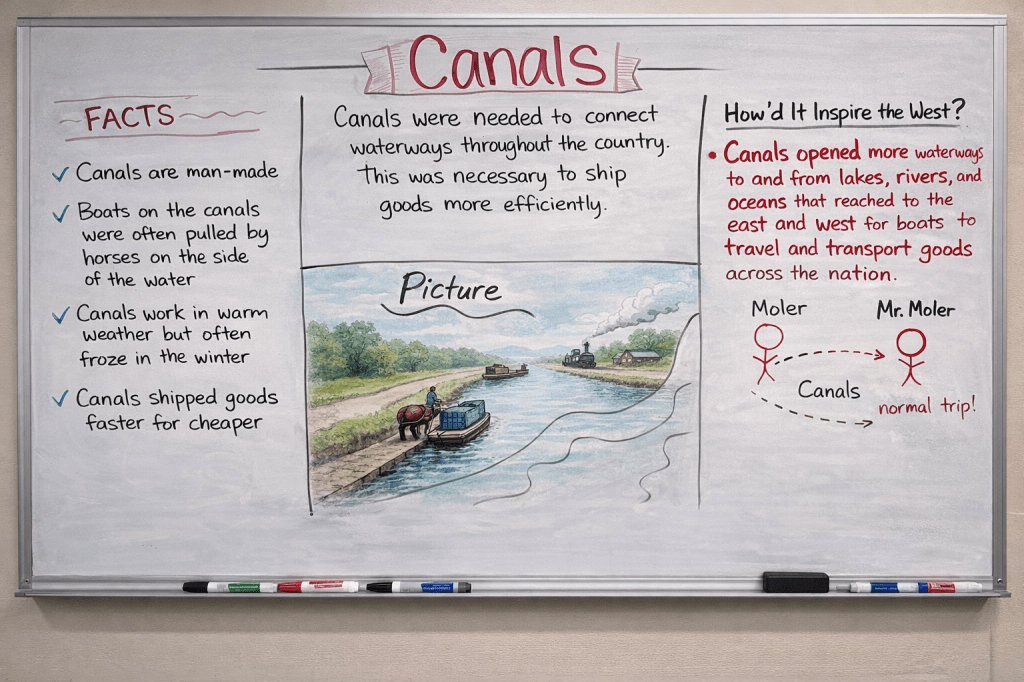 Canals
FACTS
Canals are man-made
Boats on the canals
were often pulled by
horses on the side
of the water
Canals work in warm
weather but often
froze in the winter
Canals shipped goods
faster for cheaper
Canals were needed to connect
waterways throughout the country.
This was necessary to ship
goods more efficiently.
Picture
How'd It Inspire the West?
• Canals opened more waterways
to and from lakes, rivers, and
oceans that reached to the
east and west for boats to
travel and transport goods
across the nation.
Moler
Mr. Moler
Canals
normal trip!